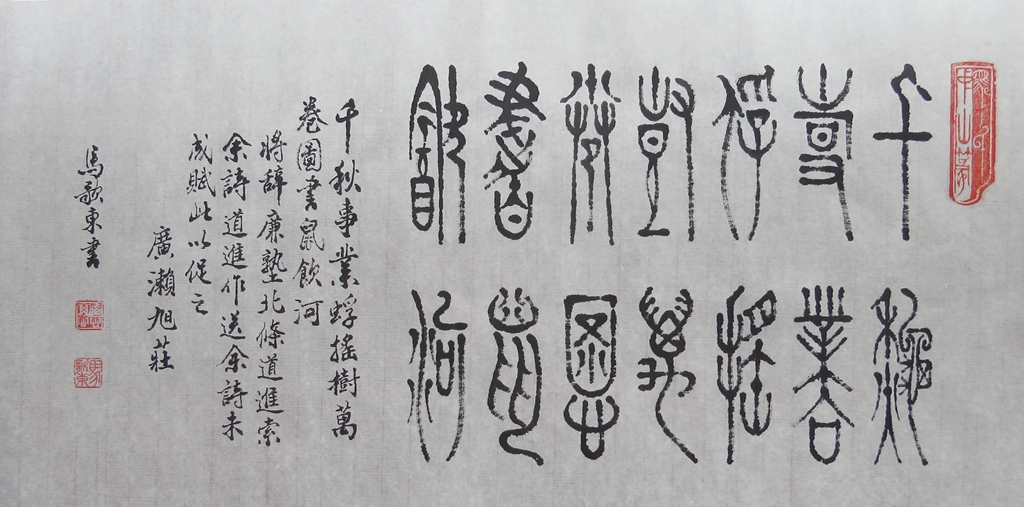 千秋
事業
蜉搖
樹萬
卷圖
書鼠
飲河
千秋事業蜉搖樹萬
卷圖書鼠飲河
將辭廉塾北條道進索
余詩道進作送余詩未
成賦此以促之
廣瀨旭莊
馬歌東書